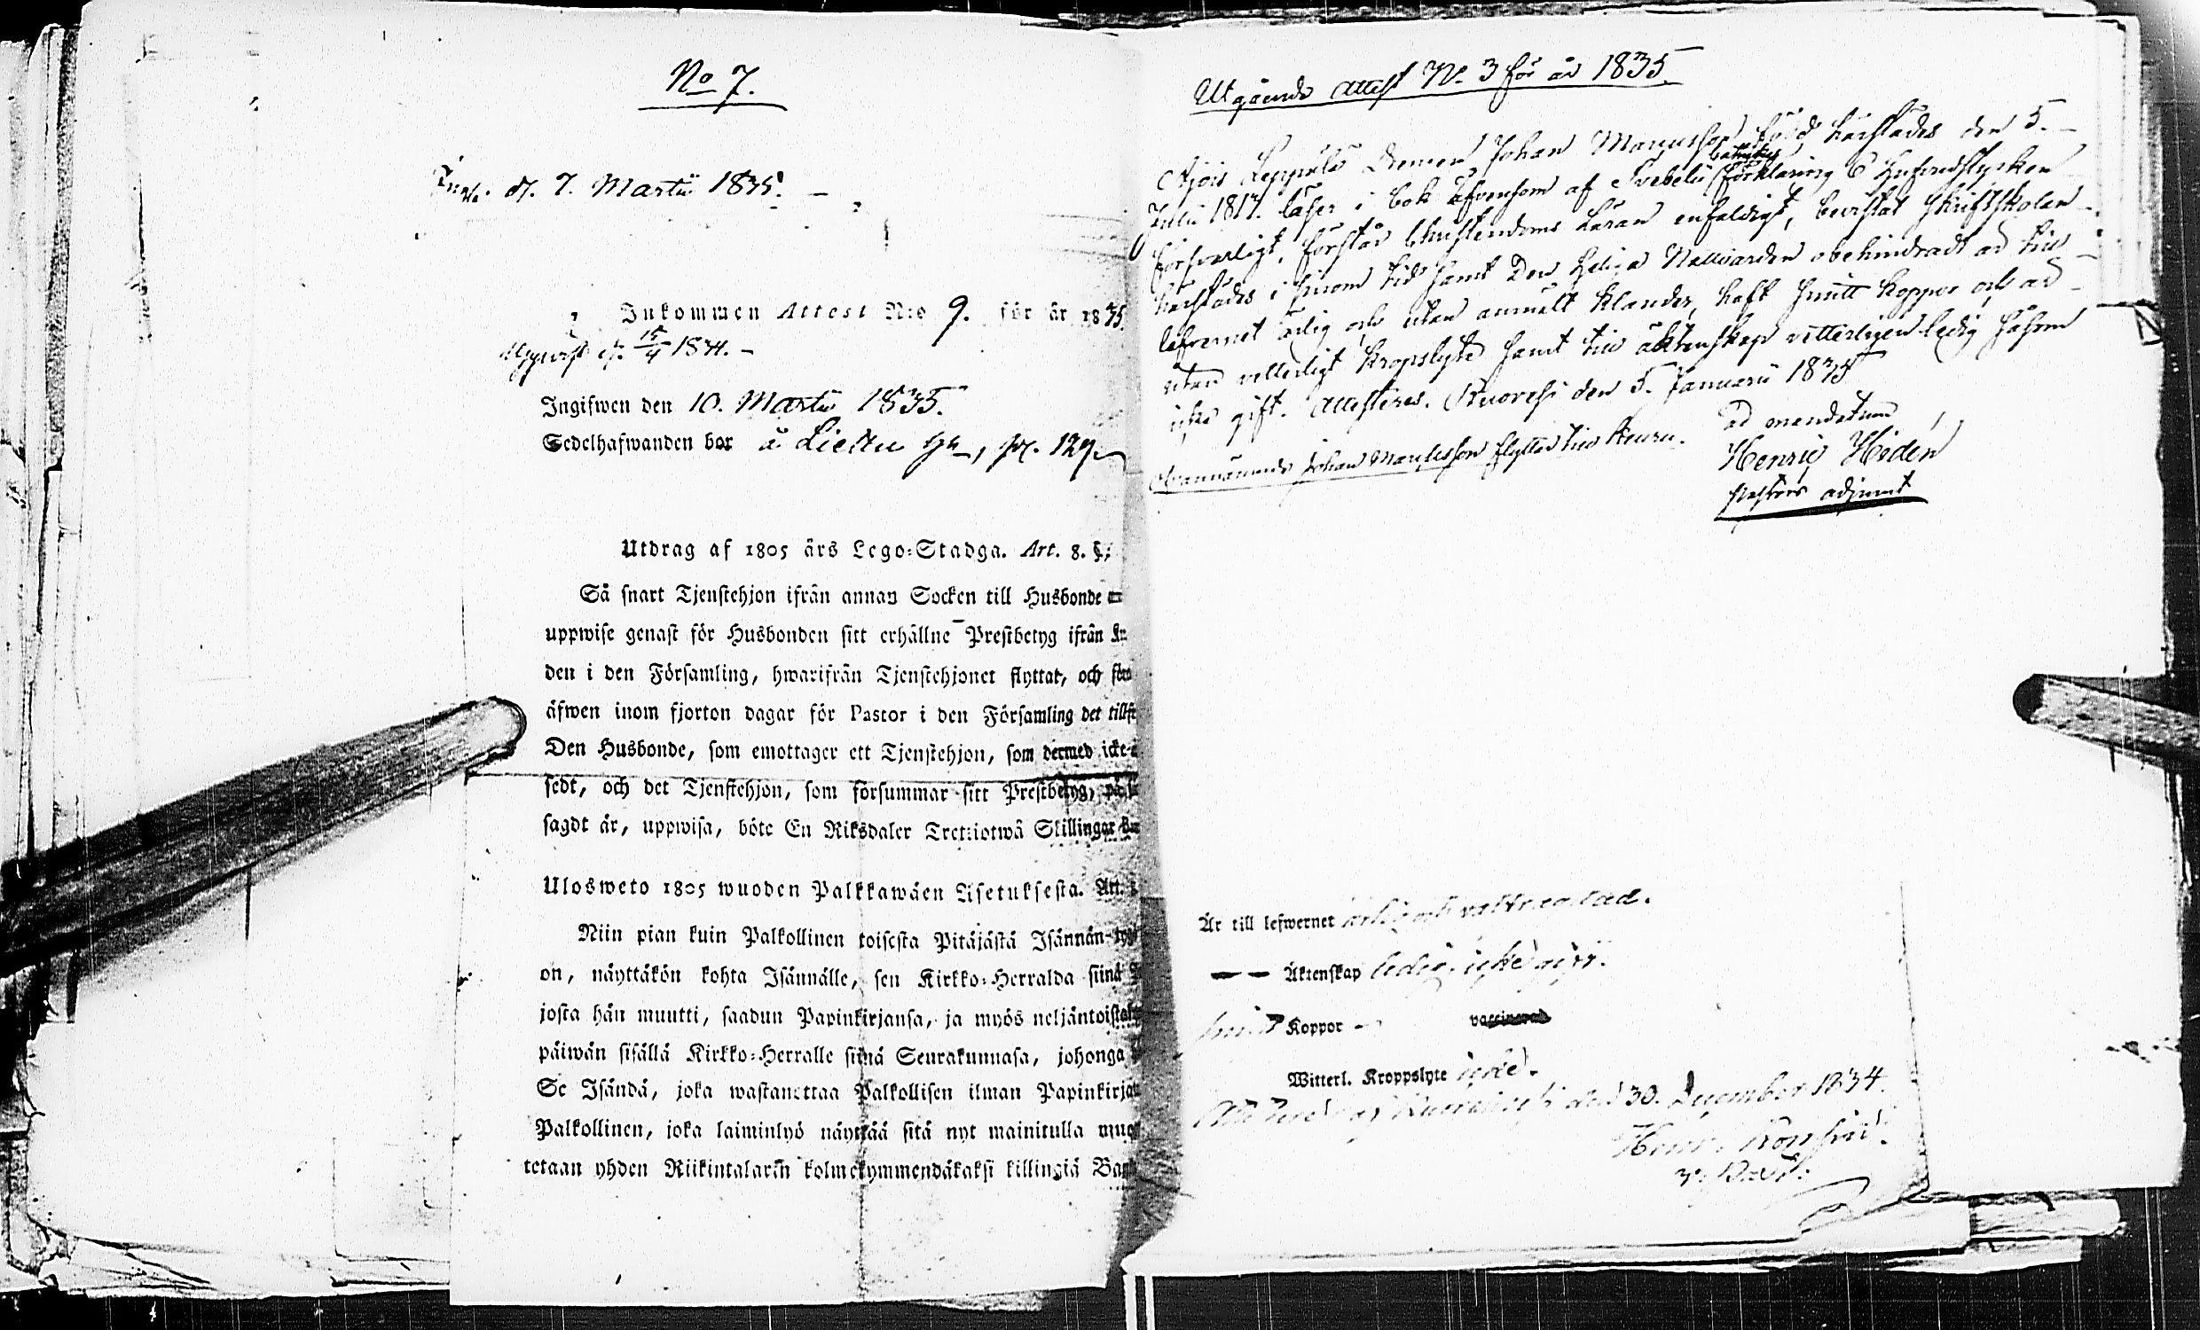 No 7.
d. 7. Martii 1835.
Inkommen Attest N:o 9. för år 1835.
d. 15/4 1834.
Ingifwen den 10. Martii 1835.
Sedelhafwanden bor å Liettu
Utdrag af 1805 års Lego-Stadga. Art. 8. §.
Så snart Tjenstehjon ifrån annan Socken till Husbonde
uppwise genast för Husbonden sitt erhållne Prestbetyg ifrån
den i den Församling, hwarifrån Tjenstehjonet flyttat, och
äfwen inom fjorton dagar för Pastor i den Församling det
Den Husbonde, som emottager ett Tjenstehjon, som dermed icke
sedt, och det Tjenstehjon, som försummar sitt Prestbetyg,
sagdt är, uppwisa, böte En Riksdaler Trettiotwå Skillingar
Ulosweto 1805 wuoden Palkkawäen Asetuksesta. Art.
Niin pian kuin Palkollinen toisesta Pitäjästä Isännän
on, näyttäkön kohta Isännälle, sen Kirkko-Herralda siinä
josta hän muutti, saadun Papinkirjansa, ja myös neljäntoista
päiwän sisällä Kirkko-Herralle siinä Seurakunnasa, johonga
Se Isändä, joka wastanottaa Palkollisen ilman Papinkirja
Palkollinen, joka laiminlyö näyttää sitä nyt mainitulla
tetaan yhden Riikintalarin kolmekymmendäkaksi killingiä
Utgående Attest N. 3 för år 1835
Leppälä Drengen Johan Marcusson född härstädes den 5.
Julii 1817. läser i bok äfvensom af Svebelii förklaring 6 Hufvudstycken
försvarligt, förstår Christendoms Läran enfaldigt, bevistat skriftskolan
härstädes i sinom tid samt Den Heliga Nattvarden obehindradt är till
lefvernet ärlig och utan anmält klander, haft Koppor och är
utan vetterligt Kropslyte samt till äktenskap vitterligen ledig såsom
icke gift. Attesteras. Kuorevesi den 5. Januarii 1835
ad mandatum
Henric Hidén
Pastors adjunct
Johan Marcusson flyttar till Keuru.
Är till lefwernet
Äktenskap ledig, icke gift.
Koppor vaccinerad
Witterl. Kroppslyte icke.
den 30. December 1834.